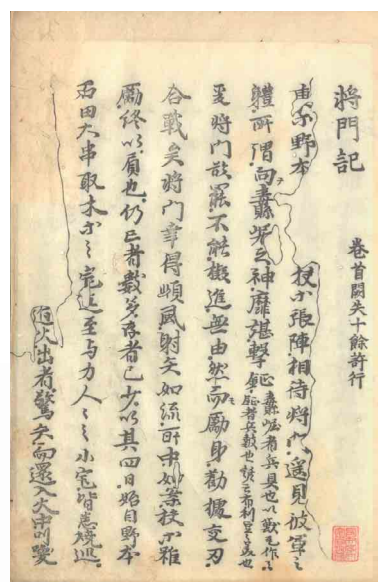 將門記
巻首闕失十餘許行
裏等野本 扶等張陣相待将門遥見彼軍之
體所謂向纛崛之神靡旗撃鉦 纛崛者兵具也以獣毛作之
鉦者兵鼓也諺云布利豆々美也
爰将門欲罷不能擬進無由然而励身勧拠交刃
合戦矣将門幸得順風射矢如流所中如案扶等雖
励終以負也仍亡者数多存者已少以其四日始自野本
石田大串取木等之宅迄至与力人々之小宅皆悉焼巡
遁火出者驚矢而還入火中叫喚